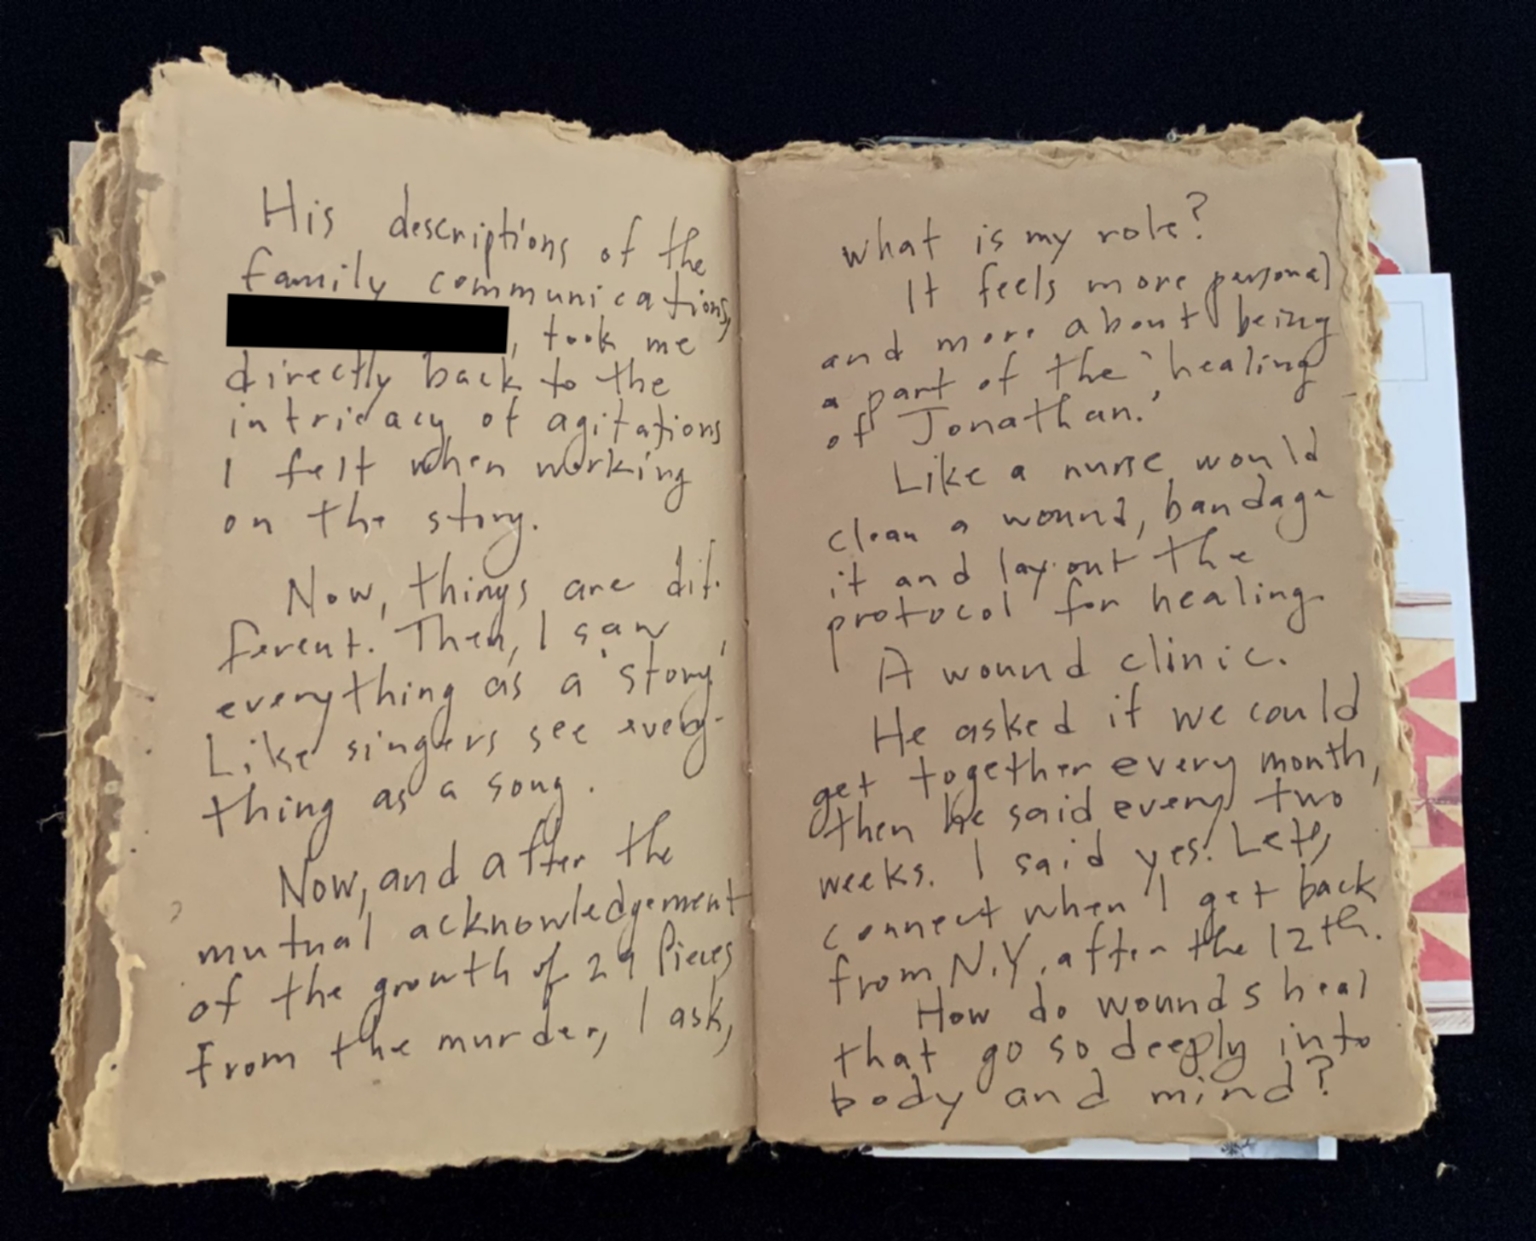 His descriptions of the
family communications,
, took me
directly back to the
intricacy of agitations
I felt when working
on the story.
Now, things are dif-
ferent. Then, I saw
everything as a 'story'
Like singers see every-
thing as a song.
Now, and after the
mutual acknowledgement
of the growth of 29 Pieces
from the murder, I ask,
what is my role?
It feels more personal
and more about being
a part of the 'healing
of Jonathan.'
Like a nurse would
clean a wound, bandage
it and lay out the
protocol for healing.
A wound clinic.
He asked if we could
get together every month,
then he said every two
weeks. I said yes! Lets
connect when I get back
from N.Y. after the 12th.
How do wounds heal
that go so deeply into
body and mind?